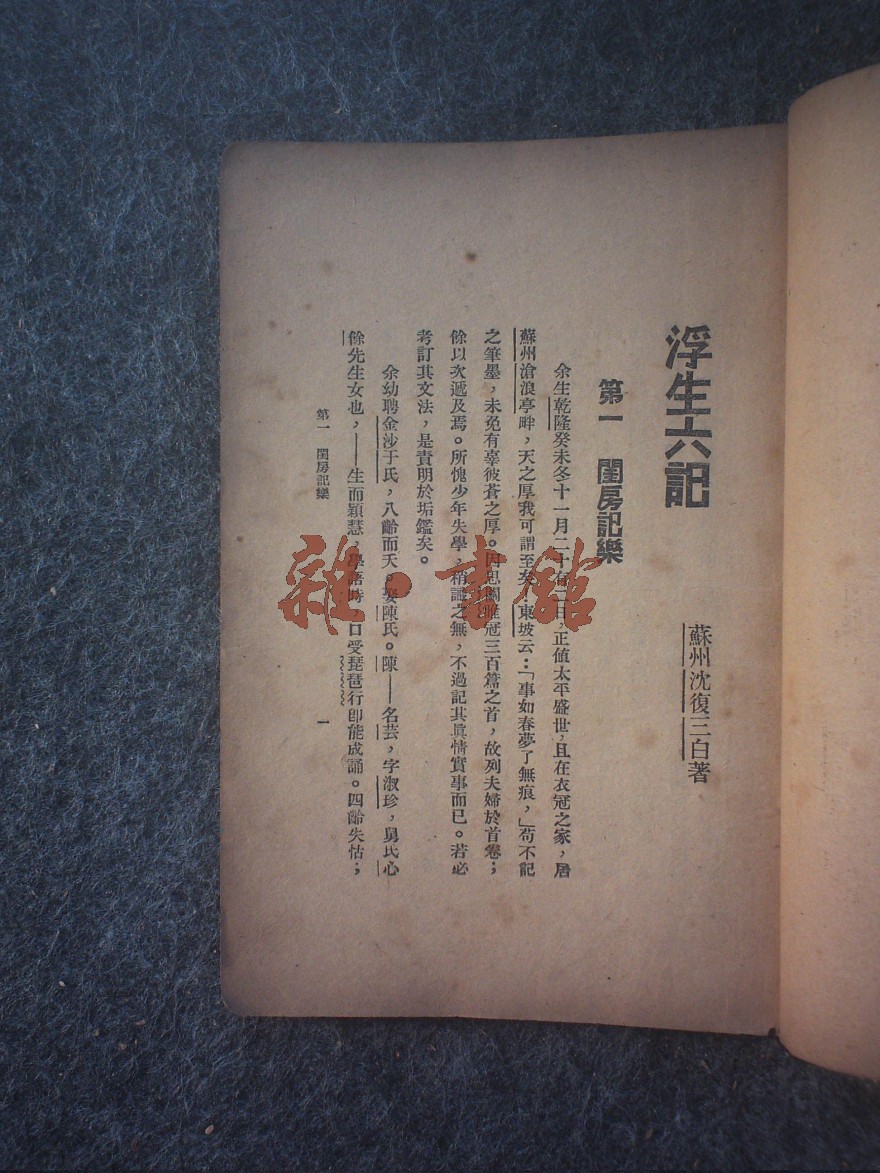 浮生六記
蘇州沈復三白著
第一 閨房記樂
余生乾隆癸未冬十一月二十有二日，正値太平盛世，且在衣冠之家，居
蘇州滄浪亭畔，天之厚我可謂至矣。東坡云：「事如春夢了無痕，」苟不記
之筆墨，未免有辜彼蒼之厚。因思關雎冠三百篇之首，故列夫婦於首卷；
餘以次遞及焉。所愧少年失學，稍識之無，不過記其眞情實事而已。若必
考訂其文法，是責明於垢鑑矣。
余幼聘金沙于氏，八齡而夭。娶陳氏。陳——名芸，字淑珍，舅氏心
餘先生女也，——生而穎慧，學語時，口受琵琶行卽能成誦。四齡失怙；
第一 閨房記樂
一
雜·書館